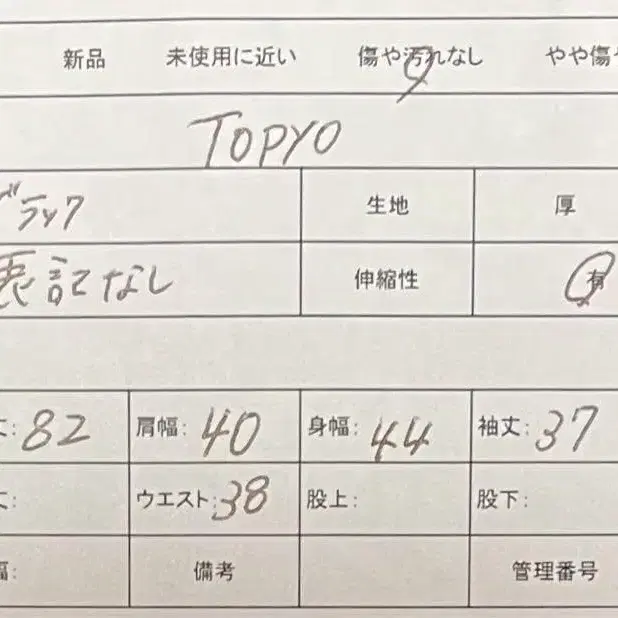 新品 未使用に近い 傷や汚れなし やや傷や
TOPYO
ブラック 生地 厚
表記なし 伸縮性 有
丈: 82 肩幅: 40 身幅: 44 袖丈: 37
丈: ウエスト: 38 股上: 股下:
幅: 備考 管理番号